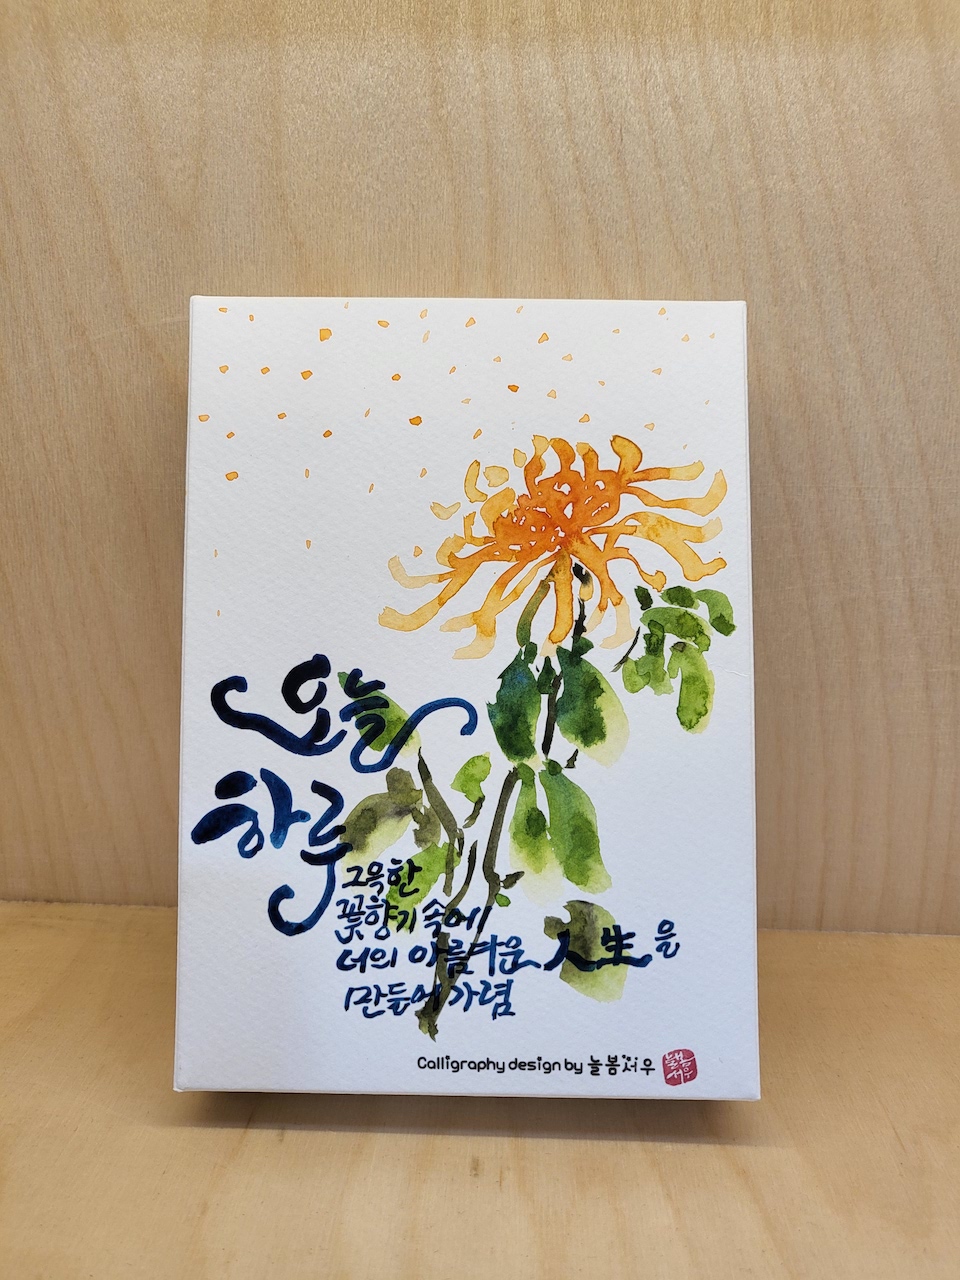 오늘
하루
그윽한
꽃향기 속에
너의 아름다운 人生을
만들어 가렴
Calligraphy design by 늘봄서우
늘봄
서우